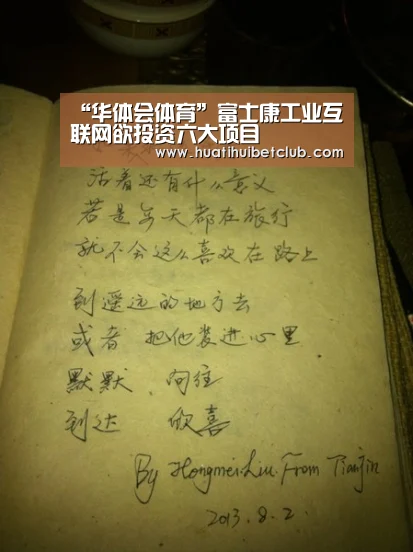 “华体会体育”富士康工业互
联网欲投资六大项目
www.huatihuibetclub.com
活着还有什么意义
若是每天都在旅行
就不会这么喜欢在路上
到遥远的地方去
或者 把他装进心里
默默 向往
到达 欣喜
By Hongmei.Liu. From Tianjin
2013.8.2.